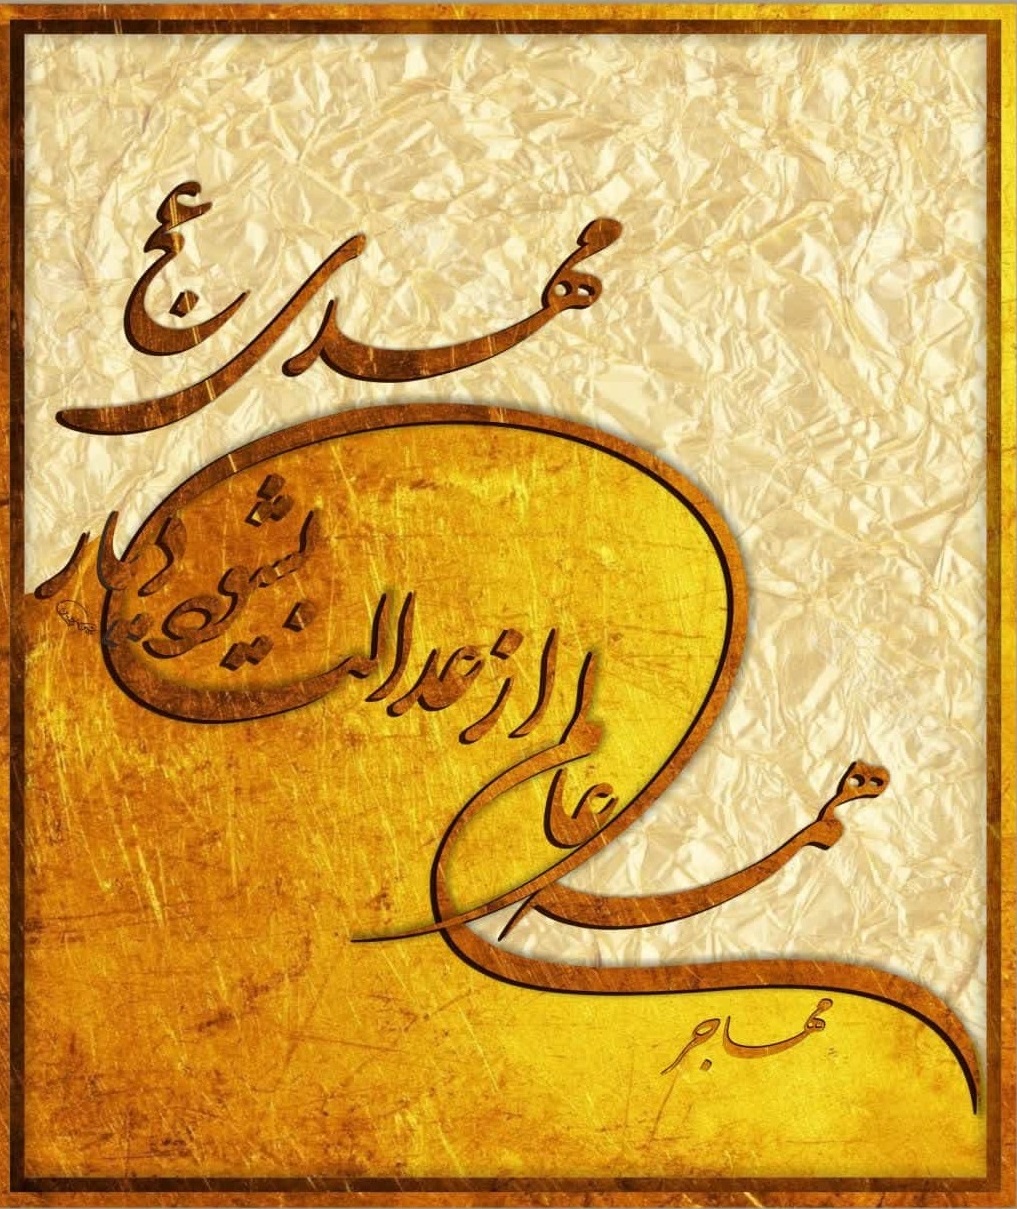 مهدی عج
همه عالم از عدالت
بهار
مهاجر